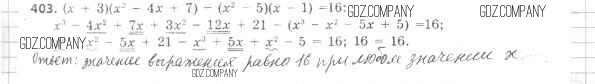 403. (x + 3)(x² - 4x + 7) - (x² - 5)(x - 1) =16: GDZ.COMPANY GDZ.COMPANY
x³ - 4x² + 7x + 3x² - 12x + 21 - (x³ - x² - 5x + 5) =16;
GDZ.COMPANY x² - 5x + 21 - x³ + 5x + x² - 5 = 16; 16 = 16.
Ответ: значение выражения равно 16 при любом значении x.
GDZ.COMPANY GDZ.COMPANY